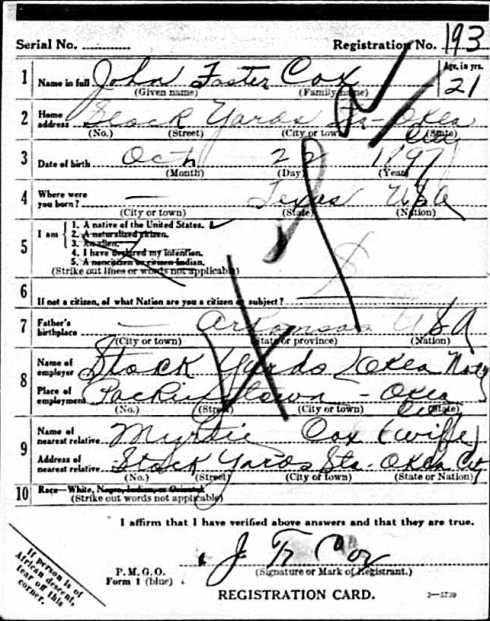 Serial No. Registration No. 193
1 Name in full John Foster Cox Age, in yrs. 21
(Given name) (Family name)
2 Home address Stock Yards Sta - Okla
(No.) (Street) (City or town) (State)
City
3 Date of birth Oct 22 1897
(Month) (Day) (Year)
4 Where were you born? — Texas USA
(City or town) (State) (Nation)
5 I am
1. A native of the United States.
2. A naturalized citizen.
3. An alien.
4. I have declared my intention.
5. A noncitizen or citizen Indian.
(Strike out lines or words not applicable)
6 If not a citizen, of what Nation are you a citizen or subject?
7 Father's birthplace — Arkansas USA
(City or town) (State or province) (Nation)
8 Name of employer Stock Yards Okla
Place of employment Packingtown - Okla
(No.) (Street) (City or town) (State)
City
9 Name of nearest relative Cox (wife)
Address of nearest relative Stock Yards Sta - Okla City
(No.) (Street) (City or town) (State or Nation)
10 Race—White, Negro, Indian, or Oriental
(Strike out words not applicable)
I affirm that I have verified above answers and that they are true.
J Cox
P.M.G.O. (Signature or Mark of Registrant.)
Form 1 (blue)
REGISTRATION CARD.
If person is of
African descent,
tear off this
corner.